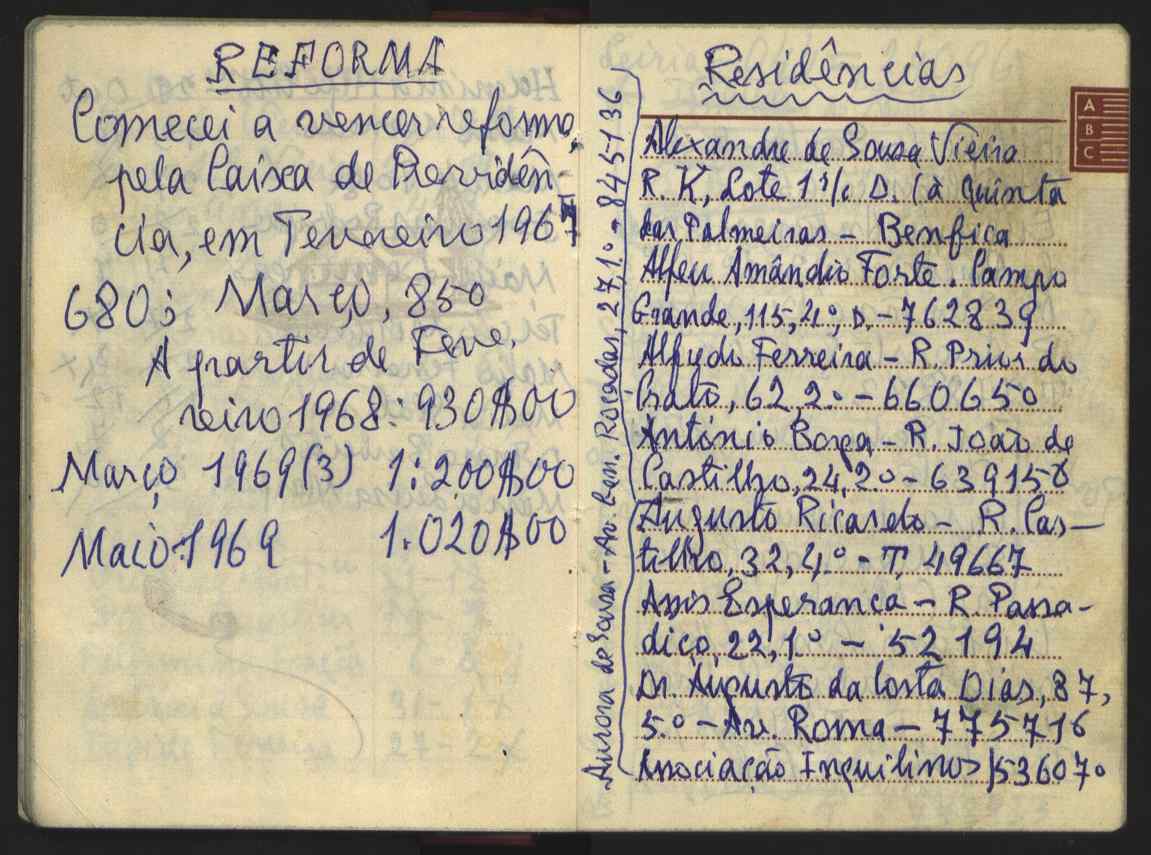 REFORMA
Comecei a vencer reforma,
pela Caixa de Previdên-
cia, em Fevereiro 1967
680; Março, 850
A partir de Feve.
reiro 1968: 930$00
Março 1969(3) 1:200$00
Maio 1969 1.020$00
Residências
A
B
C
Alexandre de Sousa Vieira
R. K, Lote 1 D. (à Quinta
das Palmeiras - Benfica
Alfeu Amândio Forte. Campo
Grande, 115, 4º, D. - 762839
Alfredo Ferreira - R. Prior do
Crato, 62, 2º - 660650
António Borga - R. João de
Castilho, 24, 2º - 639158
Augusto Ricardo - R. Cas-
tilho, 32, 4º - T. 49667
Assis Esperança - R. Passa-
diço, 22, 1º - 52194
Dr. Augusto da Costa Dias, 87,
5.º - Av. Roma - 775716
Associação Inquilinos / 536070
Aurora de Sousa - Av. Gen. Roçadas, 27, 1º - 845136